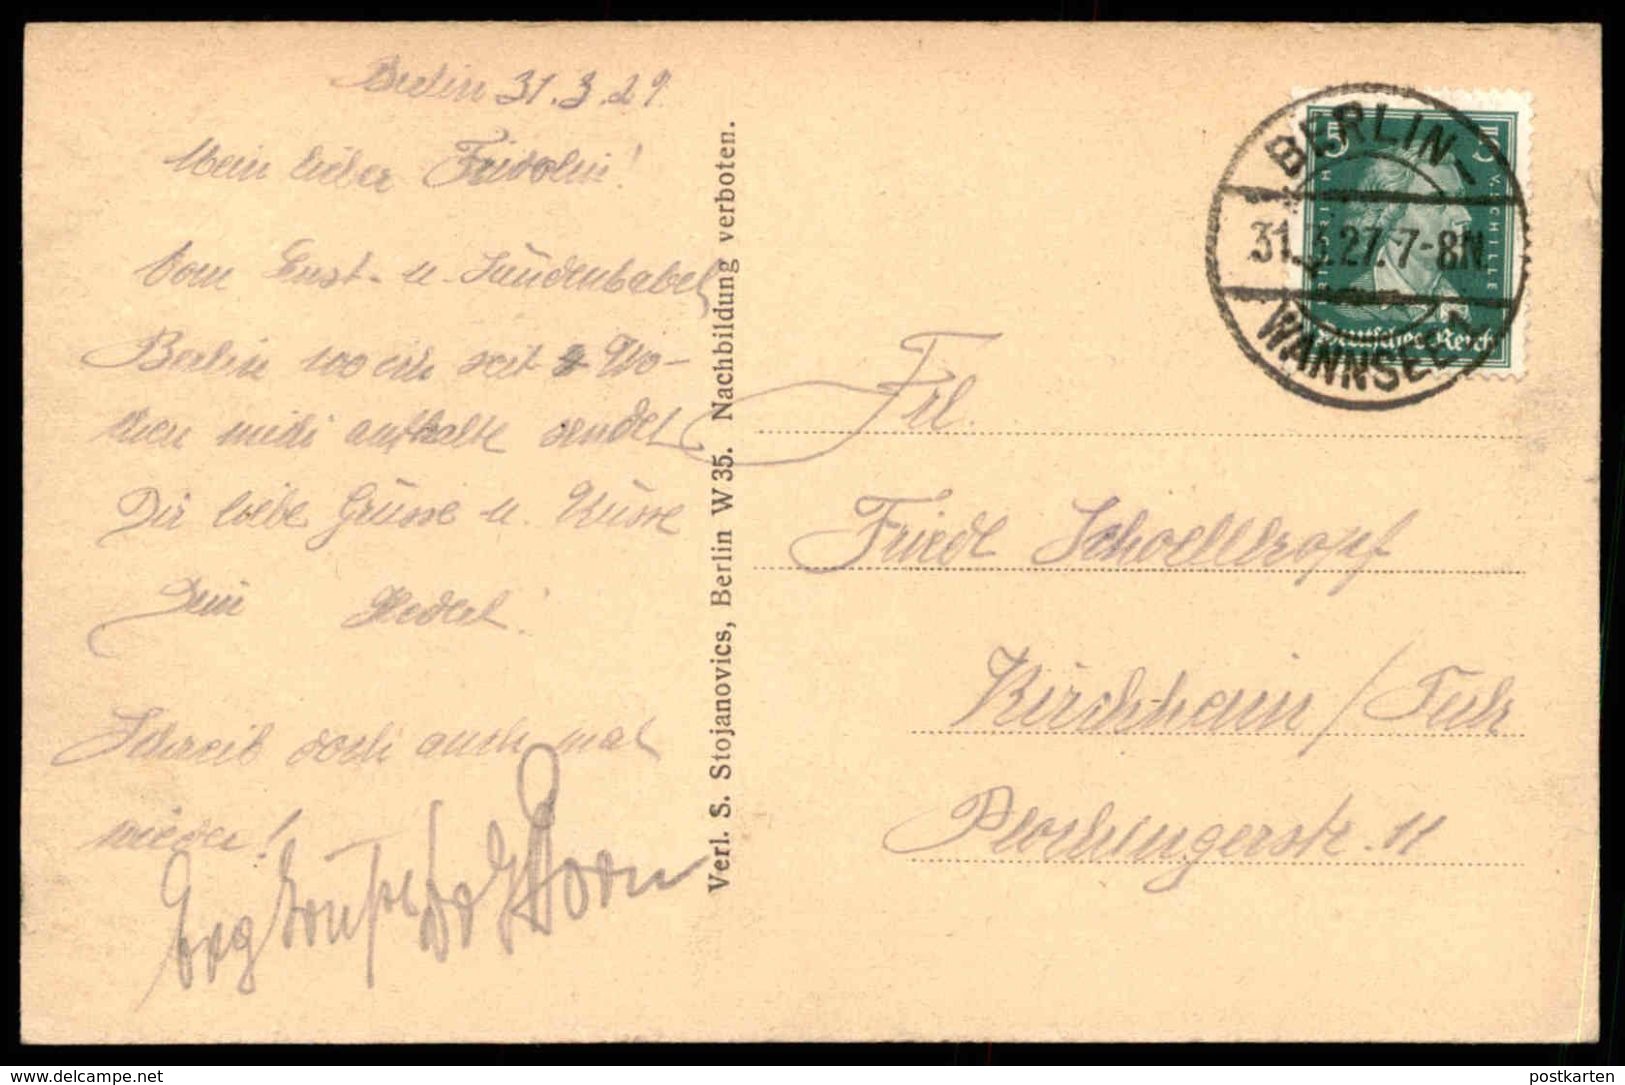 Berlin 31.3.29.
Mein lieber Fridolin!
Vom Lust- u. Sündenbabel
Berlin wo ich seit 4 Wo-
chen mich aufhalte sendet
Dir liebe Grüsse u. Küsse
Dein Hedel.
Schreib doch auch mal
wieder!
Verl. S. Stojanovics, Berlin W 35. Nachbildung verboten.
BERLIN-
31.3.27.7-8N.
WANNSEE
15 15
FRIEDRICH V. SCHILLER
Deutsches Reich
Frl.
Friedl Schoellkopf
Kirchheim/Teck
Plochingerstr. 11
www.delcampe.net
postkarten